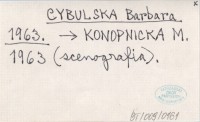 CYBULSKA Barbara
1963. → KONOPNICKA M.
1963 (scenografia).